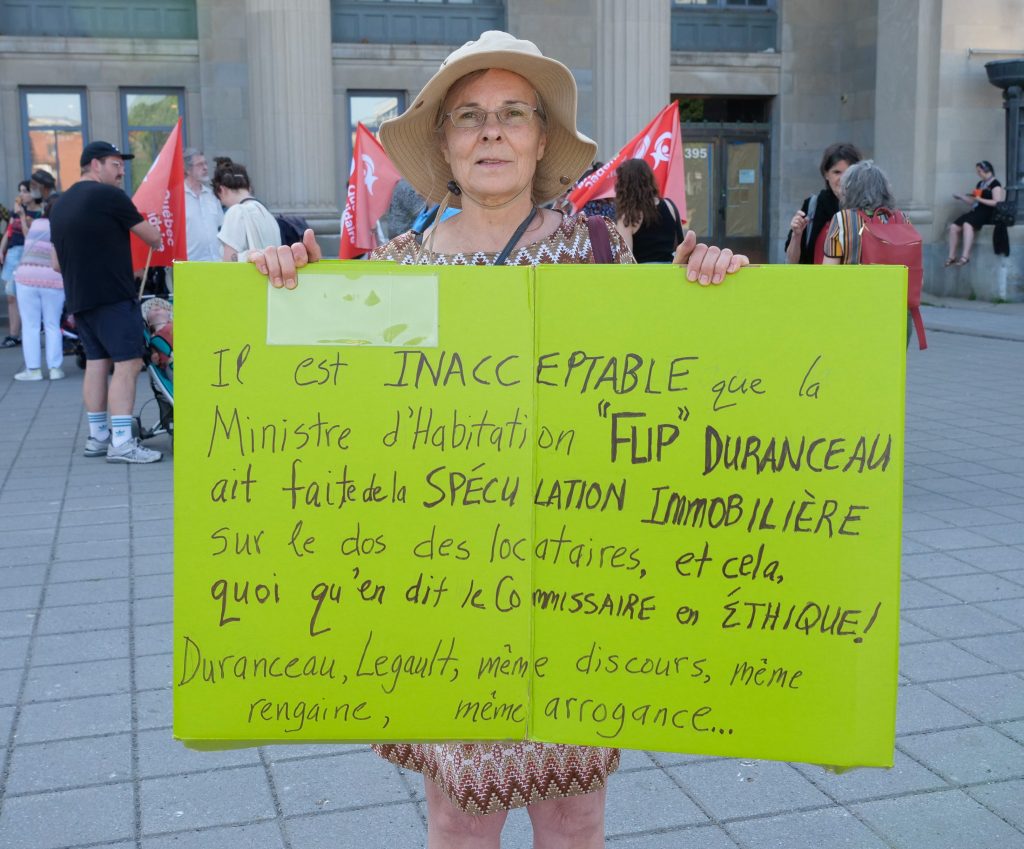 Il est INACCEPTABLE que la
Ministre d'Habitation "FLIP" DURANCEAU
ait faite de la SPÉCULATION IMMOBILIÈRE
sur le dos des locataires, et cela,
quoi qu'en dit le COMMISSAIRE en ÉTHIQUE!
Duranceau, Legault, même discours, même
rengaine, même arrogance...
395
Québec
solidaire